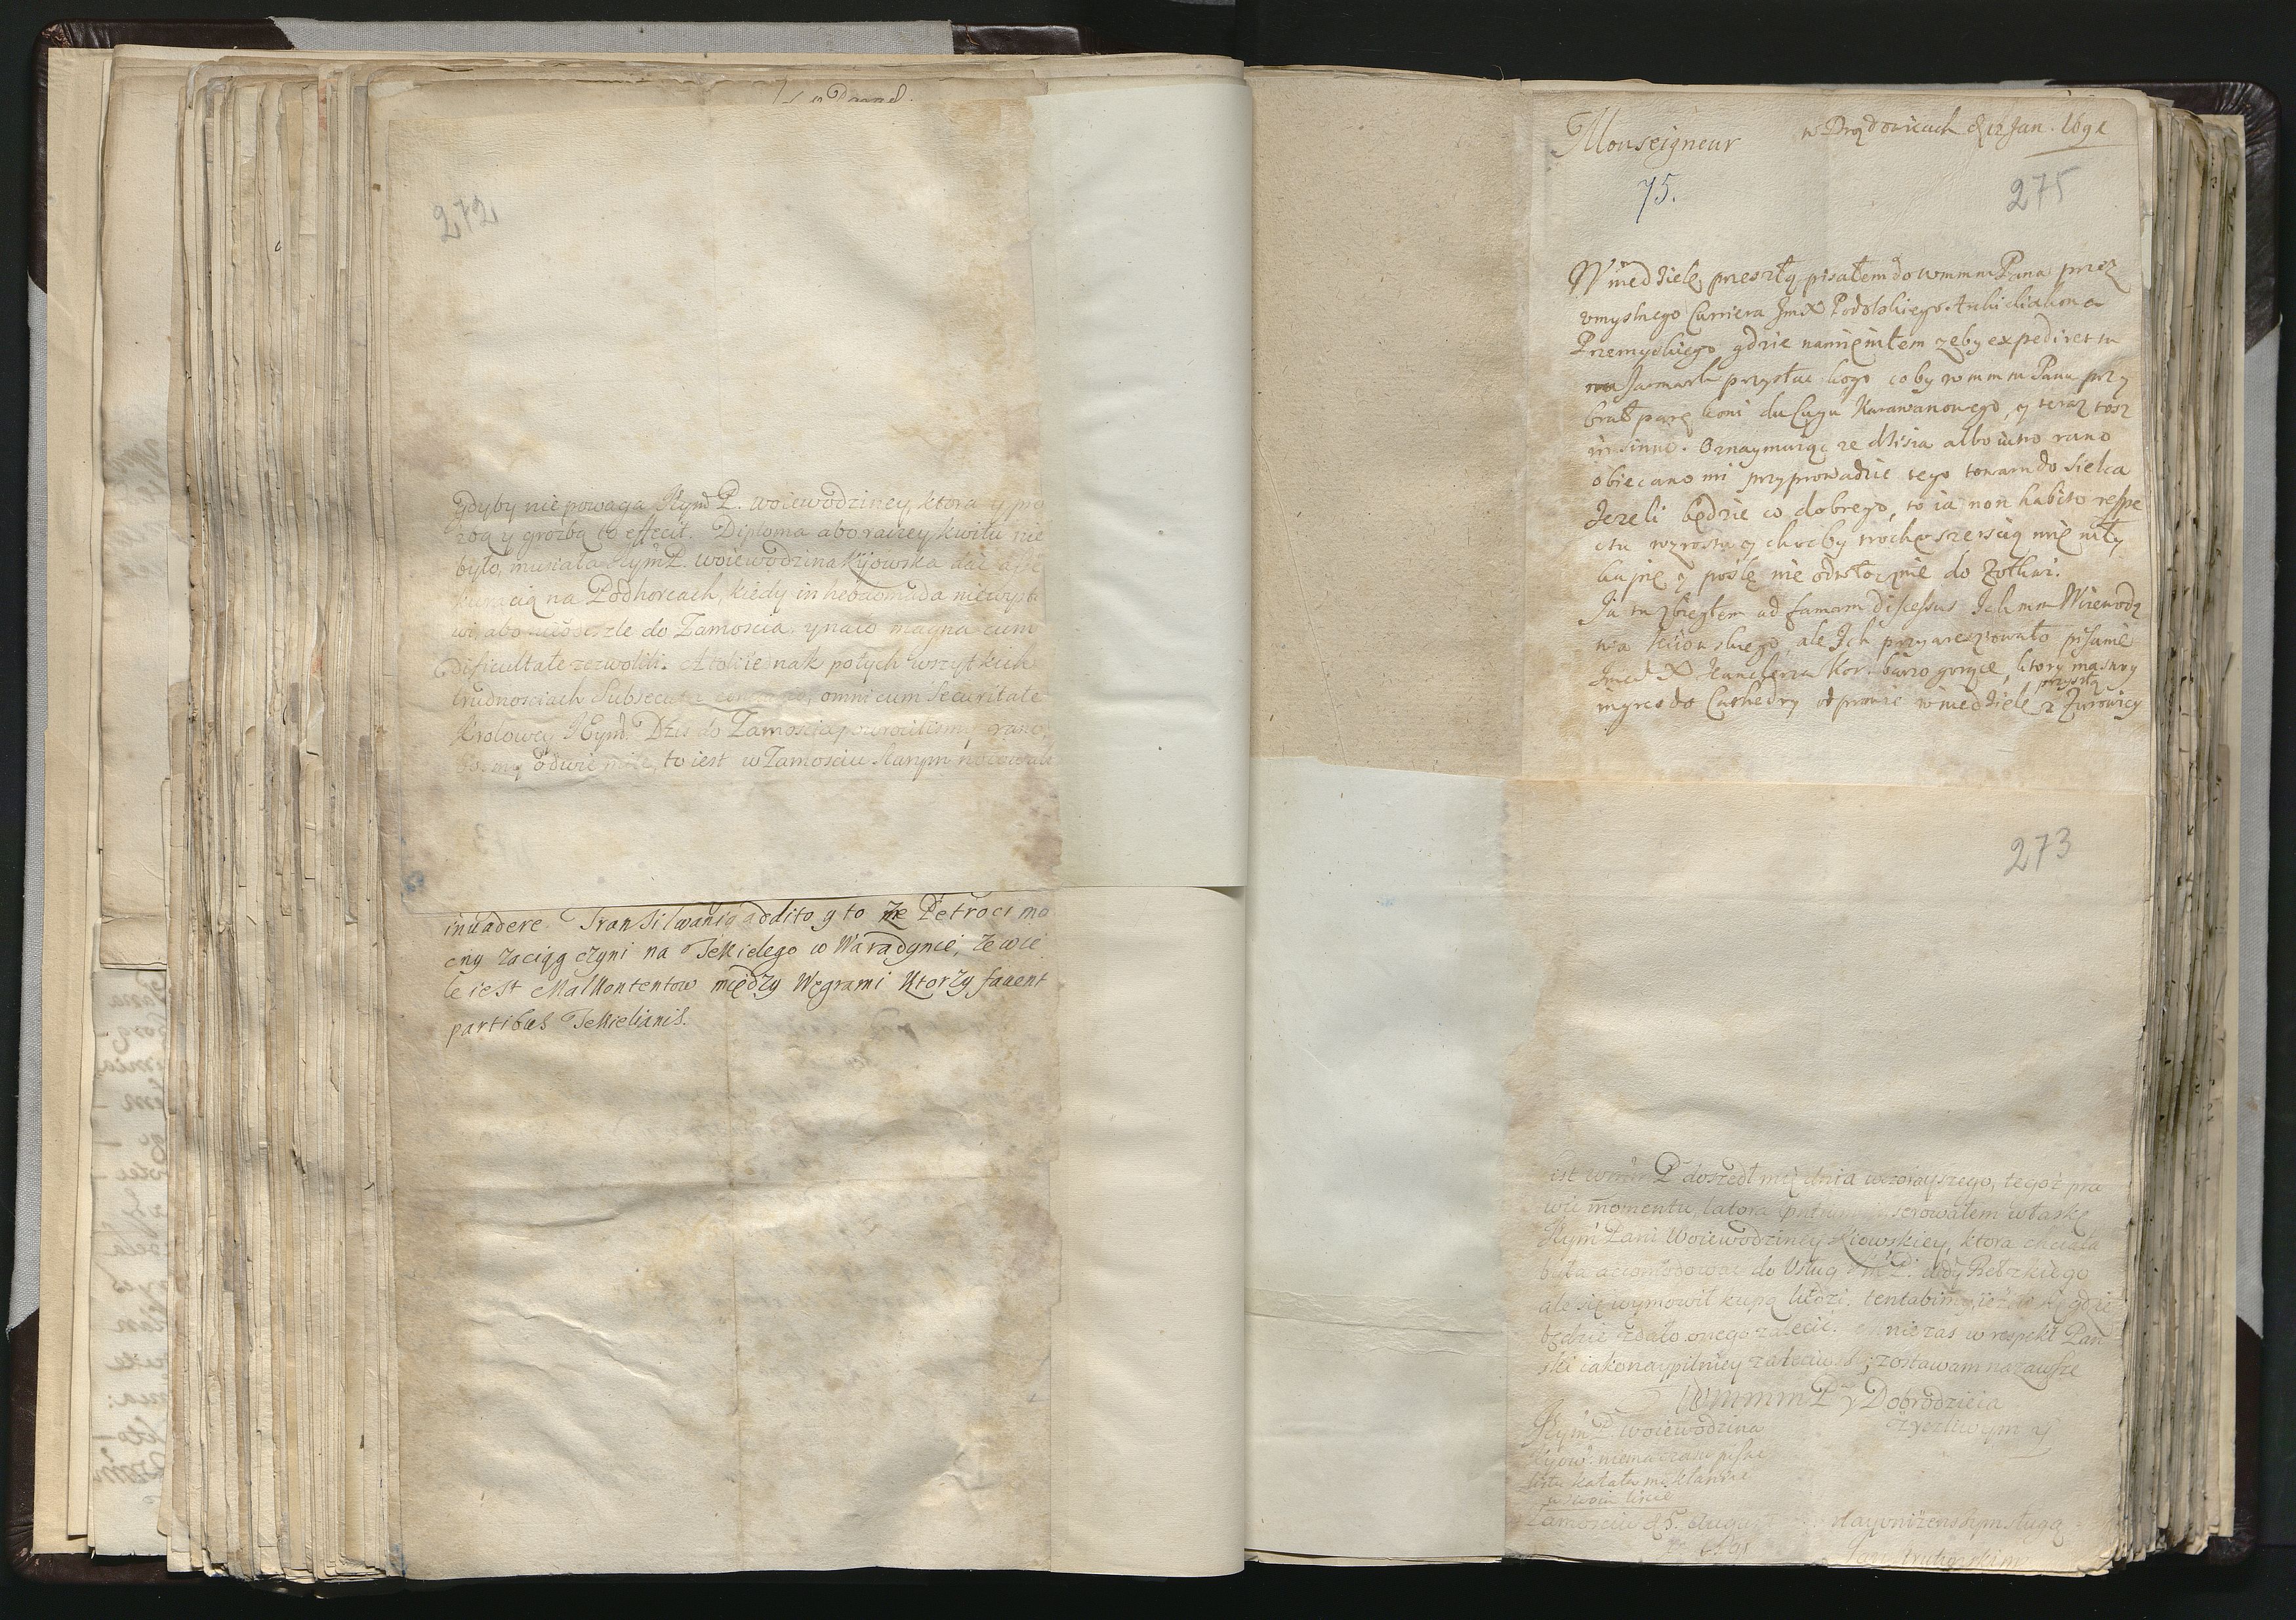 272
gdyby nie powaga JeymP. woiewodziney, ktora y pro
zbą y grozbą to effecit. Diploma abo raczey kwitu nie
było, musiała JeymP. woiewodzina Kijowska dać asse
kuracią na Podhorcach, kiedy in hebdomada
do Zamościa, magna cum
dificultate zezwolili. Atoli iednak po tych wszytkich
trudnosciach omni cum securitate
Krolowey JEym. Dziś do Zamościa powrociłem, rano
to iest w Zamościu Starym
inuadere Transilwanią addito y to że Petroci mo
cny zaciąg czyni na Tekielego w Waradynie, że wie
le iest Malkontentow między Węgrami ktorzy fauent
partibus Tekielianis.
Monseigneur
d 12 Jan. 1691
75.
275
W niedzielę przeszłą pisałem do wmmm Pana przez
vmyslnego Curriera JmX Podolskiego Archidiakona
Przemyskiego gdzie namieniłem zeby expediret tu
na Jarmark przysłac kogo coby wmmm Panu przy
brał parę koni do Cugu Karawanowego, y teraz tosz
insinuo. Oznaymuiąc ze dzisia albo iutro rano
obiecano mi przyprowadzic tego towaru do Sielca
Jezeli będzie co dobrego, to ia non habito respe
ctu wzrostu y chocby trochę szerscią
kupię y poślę nie odwłocznie do Zołkwi.
Ja tu zbiegłem ad famam discessus Ich mm Woiewodz
twa Kiiowskiego, ale Ich przyaresztowało pisanie
Jmci X Kanclerza Kor. barzo gorące, ktory ma swoy
ingres do Cathedry odprawic w niedzielę przyszłą z Zurowicy
273
list wmm P doszedł mię dnia wczorayszego, tegoż pra
wie momentu, latora w łaskę
Jeym Pani Woiewodziney Kiowskiey, ktora chciała
była accomodować do Usług Wdy Bełzkiego
ale się wymowił kupą ludzi. tentabimus ieżeli kędy
będzie zdało onego zalecić. mnie zas w respekt Pań
ski iako naypilniey zaleciwszy, zostawam na zawsze
Wmmm P y Dobrodzieia
Jeym P. Woiewodzina
życzliwym y
Kijow. niema czasu pisać
listu kazała mi kłaniać
w swoim liscie
Zamościu d 5. Augu
nayuniżenszym sługą